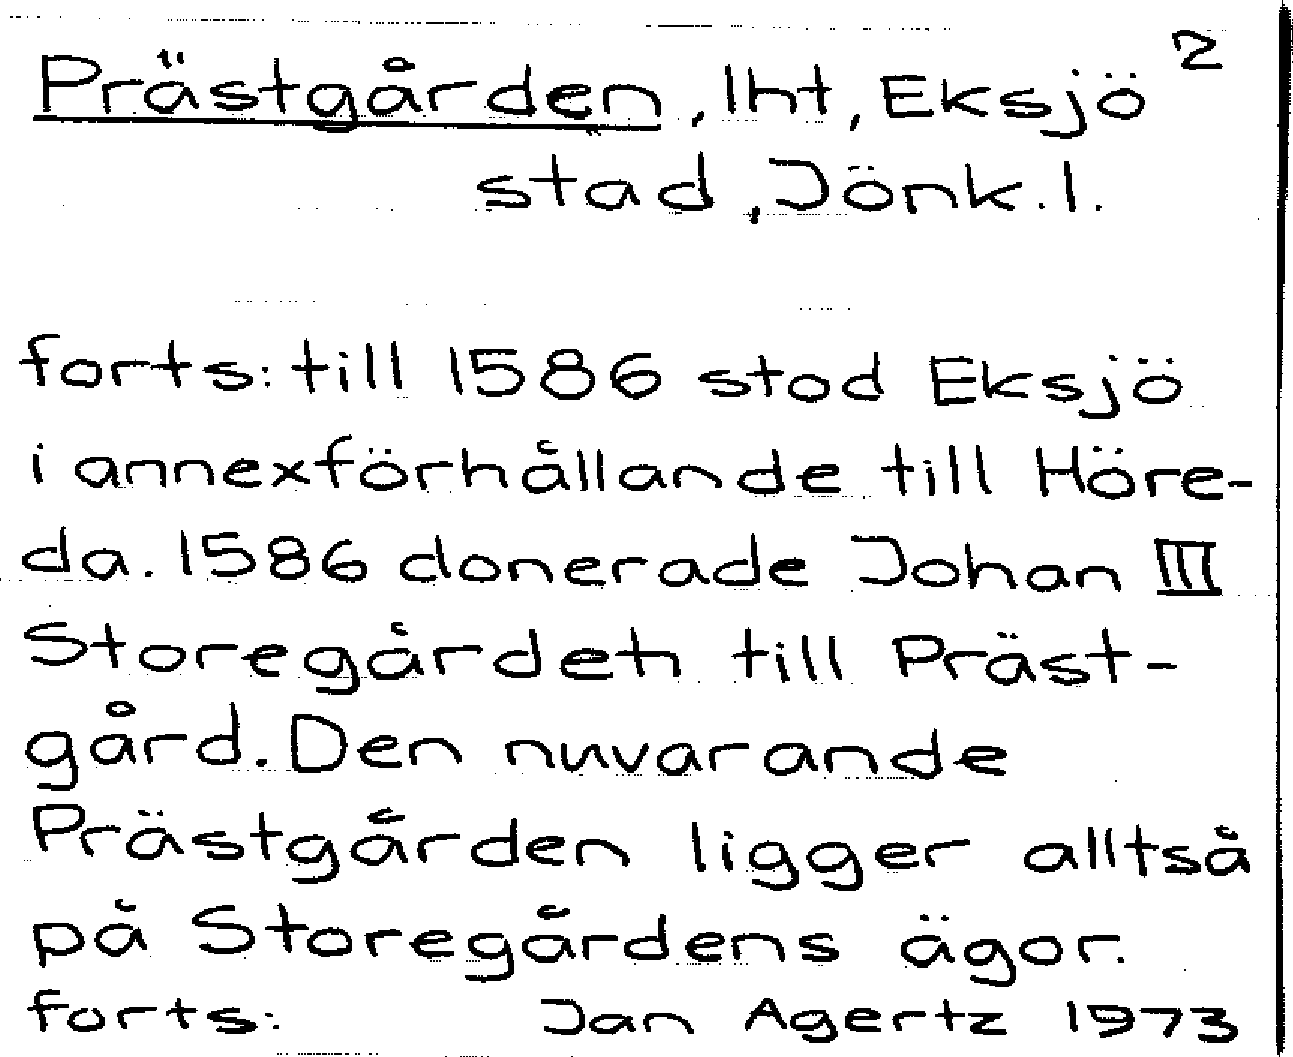 Prästgården, lht, Eksjö 2
stad, Jönk.l.
forts: till 1586 stod Eksjö
i annexförhållande till Höre-
da. 1586 donerade Johan III
Storegården till Präst-
gård. Den nuvarande
Prästgården ligger alltså
på Storegårdens ägor.
forts: Jan Agertz 1973